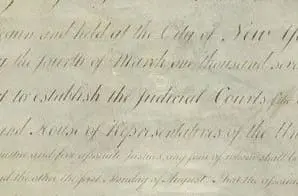 and held at the City of New
the fourth of March one thousand
to establish the Judicial Courts of the
and House of Representatives of the
and five associate justices, any four of whom shall be
and the other the first Monday of August. That the